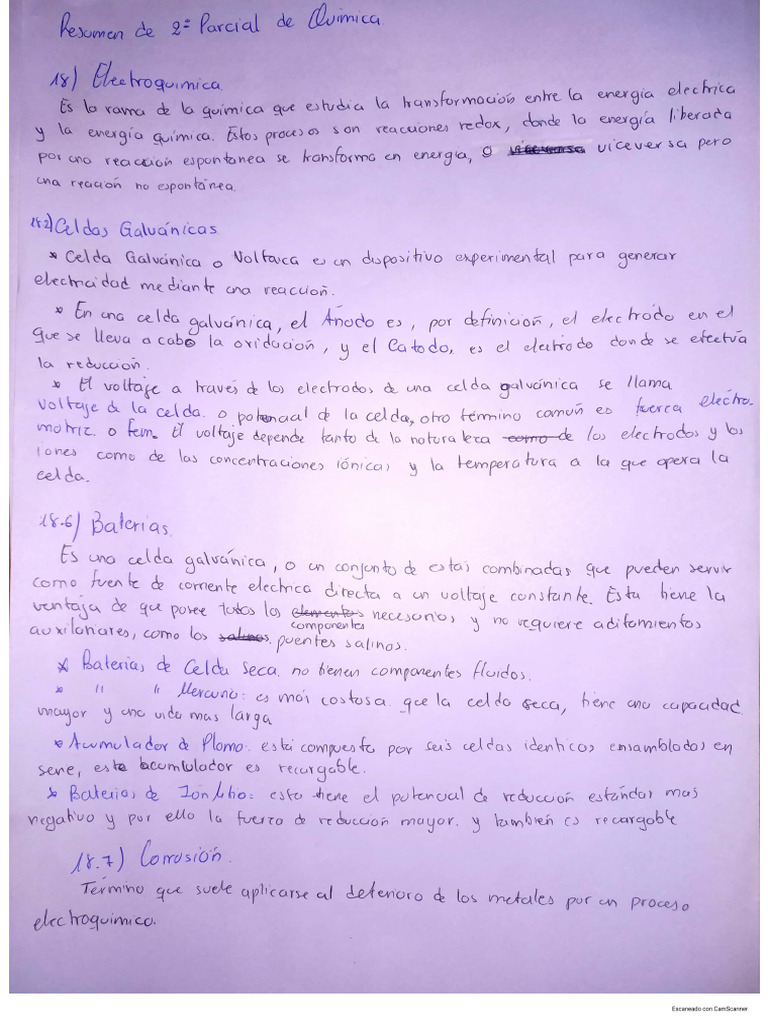 Resumen de 2º Parcial de Quimica.
18) Electroquimica.
Es la rama de la química que estudia la transformación entre la energía electrica
y la energía química. Estos procesos son reacciones redox, donde la energía liberada
por una reacción espontanea se transforma en energía, o viceversa viceversa pero
una reacción no espontánea.
18.2) Celdas Galvánicas
* Celda Galvánica o Voltaica es un dispositivo experimental para generar
electricidad mediante una reacción.
* En una celda galvánica, el Ánodo es, por definición, el electrodo en el
que se lleva a cabo la oxidación, y el Catodo, es el electrodo donde se efectúa
la reducción.
* El voltaje a través de los electrodos de una celda galvánica se llama
voltaje de la celda. o potencial de la celda, otro término común es fuerca electro-
motriz. o fem. El voltaje depende tanto de la naturaleza como de los electrodos y los
iones como de las concentraciones iónicas y la temperatura a la que opera la
celda.
18.6) Baterias.
Es una celda galvánica, o un conjunto de estas combinadas que pueden servir
como fuente de corriente electrica directa a un voltaje constante. Esta tiene la
ventaja de que posee todos los elementos necesarios y no requiere aditamientos
componentes
auxilonares, como los salinos. puentes salinos.
* Baterias de Celda Seca. no tienen componentes fluidos.
* " " Mercurio: es más costosa que la celda seca, tiene una capacidad
mayor y una vida mas larga
* Acumulador de Plomo: está compuesto por seis celdas identicas ensamblados en
serie, este acumulador es recargable.
* Baterias de Ión litio: esta tiene el potencial de reducción estándar mas
negativo y por ello la fuerza de reducción mayor. y también es recargable
18.7) Corrosión.
Término que suele aplicarse al deterioro de los metales por un proceso
electroquimico.
Escaneado con CamScanner